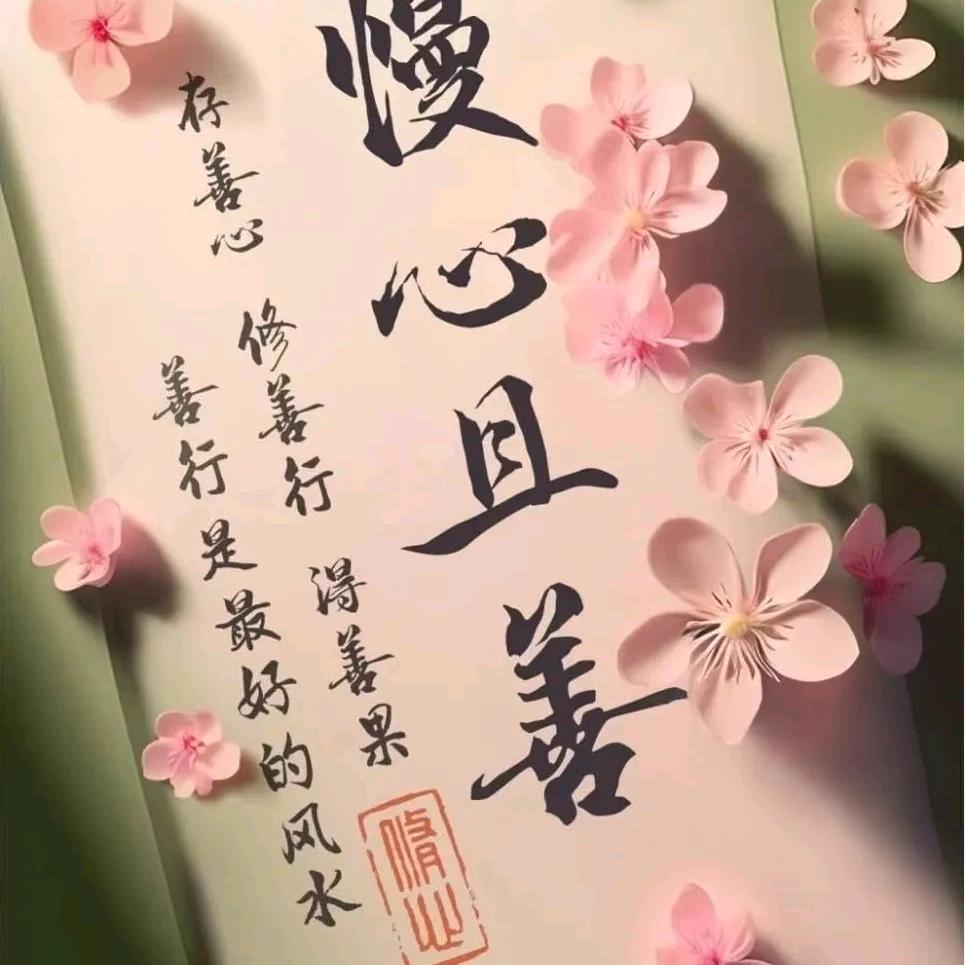 慢心且善
存善心 修善行 得善果
善行是最好的风水